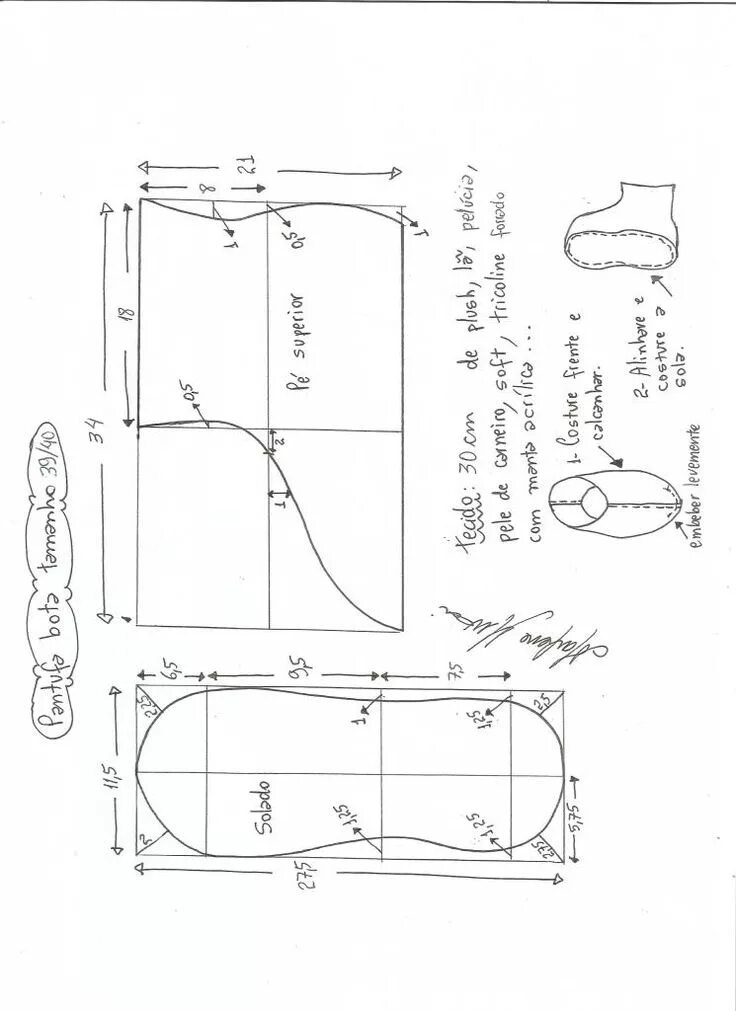 Pantufa bota tamanho 39/40
34
18
21
8
1
0,5
1
Pé superior
0,5
2
1
tecido: 30 cm de plush, lã, pelúcia,
pele de carneiro, soft, tricoline forrado
com manta acrílica...
1- Costure frente e
calcanhar.
embeber levemente
2- Alinhave e
costure a
sola.
11,5
6,5
9,5
7,5
2,5
1
1,25
Solado
1,25
1,25
2,75
5,75
27,5